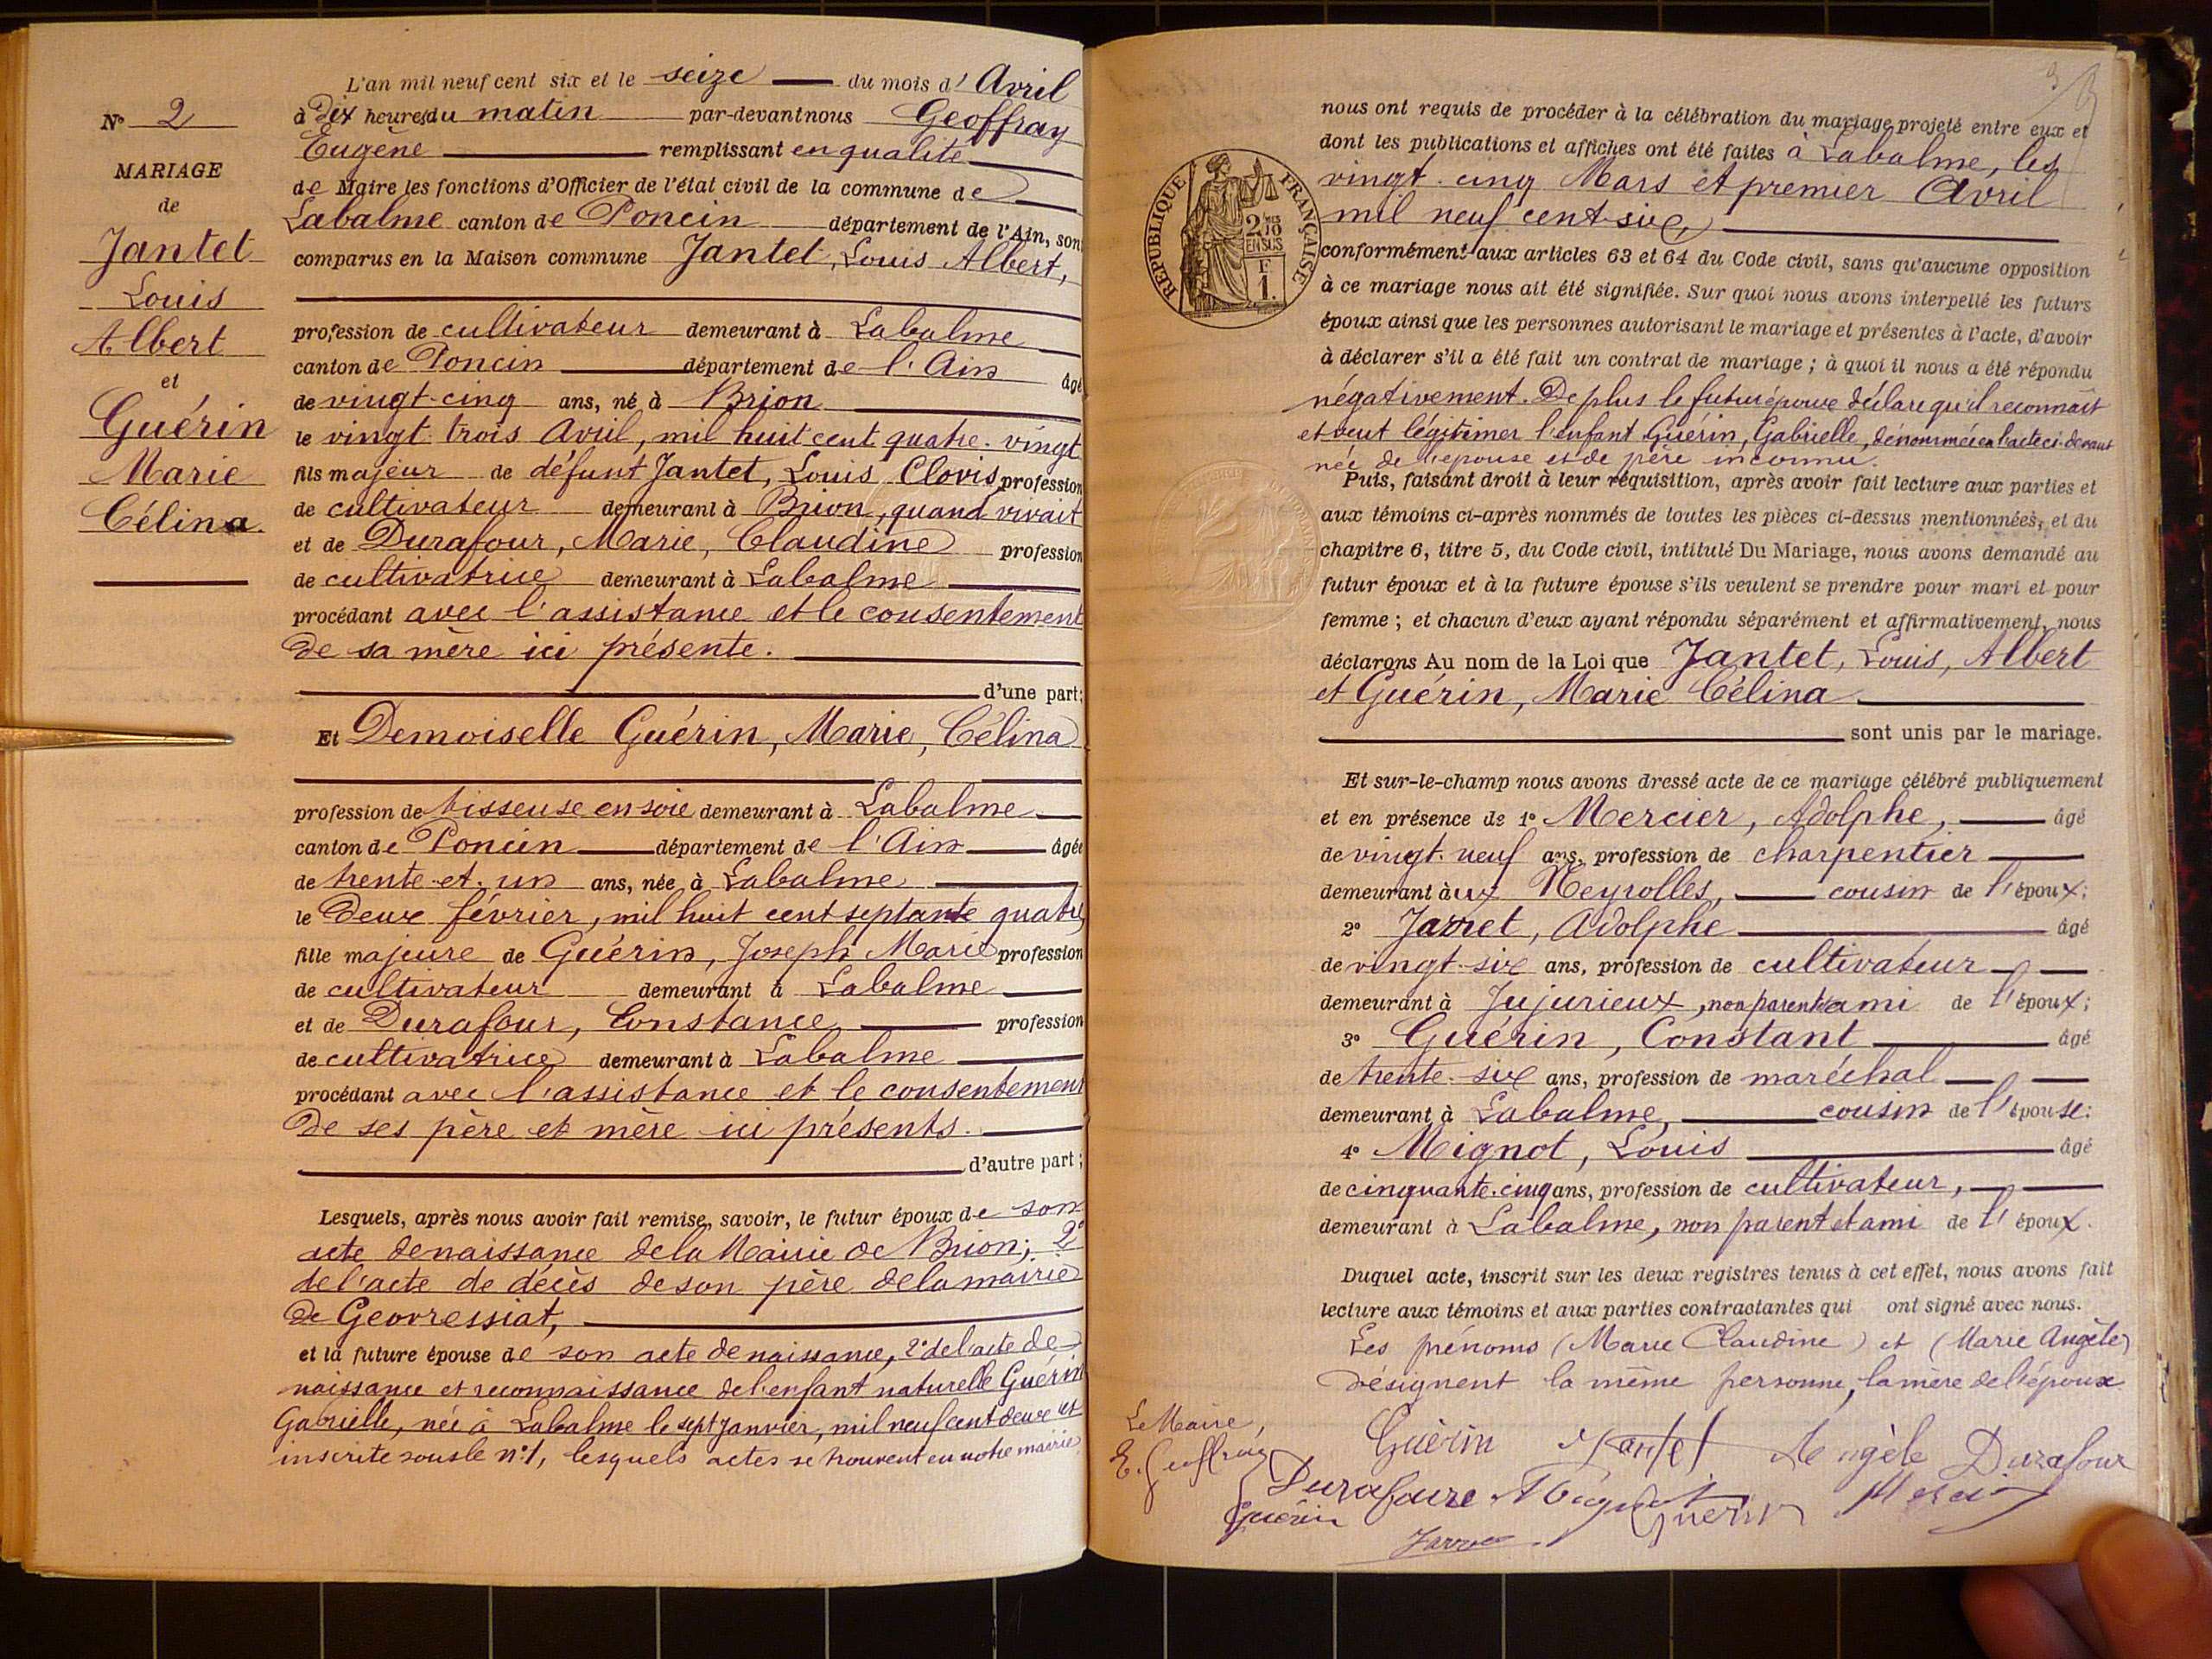 N° 2
MARIAGE
de
Jantet
Louis
Albert
et
Guérin
Marie
Célina
L'an mil neuf cent six et le seize du mois d' Avril
à Dix heures du matin par-devant nous Geoffray
Eugène remplissant en qualité
de Maire les fonctions d'Officier de l'état civil de la commune de
Labalme canton de Poncin département de l'Ain, sont
comparus en la Maison commune Jantet, Louis Albert,
profession de cultivateur demeurant à Labalme
canton de Poncin département de l'Ain âgé
de vingt-cinq ans, né à Brion
le vingt-trois Avril, mil huit cent quatre-vingt
fils majeur de défunt Jantet, Louis Clovis profession
de cultivateur demeurant à Brion, quand vivait
et de Durafour, Marie, Claudine profession
de cultivatrice demeurant à Labalme
procédant avec l'assistance et le consentement
de sa mère ici présente.
d'une part;
Et Demoiselle Guérin, Marie, Célina
profession de tisseuse en soie demeurant à Labalme
canton de Poncin département de l'Ain âgée
de trente-et-un ans, née à Labalme
le deux février, mil huit cent septante quatre
fille majeure de Guérin, Joseph Marie profession
de cultivateur demeurant à Labalme
et de Durafour, Constance profession
de cultivatrice demeurant à Labalme
procédant avec l'assistance et le consentement
de ses père et mère ici présents.
d'autre part;
Lesquels, après nous avoir fait remise, savoir, le futur époux de son
acte de naissance de la Mairie de Brion; 2°
de l'acte de décès de son père de la mairie
de Geovressiat,
et la future épouse de son acte de naissance, 2° de l'acte de
naissance et reconnaissance de l'enfant naturelle Guérin
Gabrielle, née à Labalme le sept Janvier, mil neuf cent deux et
inscrite sous le n° 1, lesquels actes se trouvent en notre mairie
3
nous ont requis de procéder à la célébration du mariage projeté entre eux et
dont les publications et affiches ont été faites à Labalme, les
vingt-cinq Mars et premier Avril
mil neuf cent-six,
RÉPUBLIQUE FRANÇAISE
2/10
EN SUS
F
1.
conformément aux articles 63 et 64 du Code civil, sans qu'aucune opposition
à ce mariage nous ait été signifiée. Sur quoi nous avons interpellé les futurs
époux ainsi que les personnes autorisant le mariage et présentes à l'acte, d'avoir
à déclarer s'il a été fait un contrat de mariage; à quoi il nous a été répondu
négativement. De plus le futur époux déclare qu'il reconnaît
et veut légitimer l'enfant Guérin, Gabrielle, dénommée en l'acte ci-devant
née de l'épouse et de père inconnu.
Puis, faisant droit à leur réquisition, après avoir fait lecture aux parties et
aux témoins ci-après nommés de toutes les pièces ci-dessus mentionnées, et du
chapitre 6, titre 5, du Code civil, intitulé Du Mariage, nous avons demandé au
futur époux et à la future épouse s'ils veulent se prendre pour mari et pour
femme; et chacun d'eux ayant répondu séparément et affirmativement, nous
déclarons Au nom de la Loi que Jantet, Louis, Albert
et Guérin, Marie Célina
sont unis par le mariage.
Et sur-le-champ nous avons dressé acte de ce mariage célébré publiquement
et en présence de 1° Mercier, Adolphe, âgé
de vingt-neuf ans, profession de charpentier
demeurant aux Neyrolles, cousin de l'époux;
2° Jarret, Adolphe âgé
de vingt-six ans, profession de cultivateur
demeurant à Jujurieux, non parent & ami de l'époux;
3° Guérin, Constant âgé
de trente-six ans, profession de maréchal
demeurant à Labalme, cousin de l'épouse;
4° Mignot, Louis âgé
de cinquante-cinq ans, profession de cultivateur,
demeurant à Labalme, non parent et ami de l'époux.
Duquel acte, inscrit sur les deux registres tenus à cet effet, nous avons fait
lecture aux témoins et aux parties contractantes qui ont signé avec nous.
Les prénoms (Marie Claudine) et (Marie Angèle)
désignent la même personne, la mère de l'époux
Le Maire,
E. Geoffray
Guérin Jantet Angèle Durafour
Durafour Mignot Guérin Mercier
Guérin
Jarret